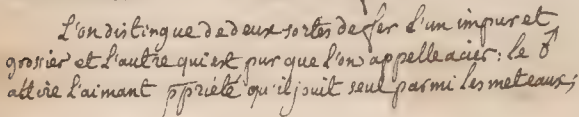 L'on distingue de deux sortes de fer L'un impur et
grosier et L'autre qui est pur que l'on appelle acier: le ♂
attire l'aimant ppriété qu'il jouit seul parmi les meteaux;